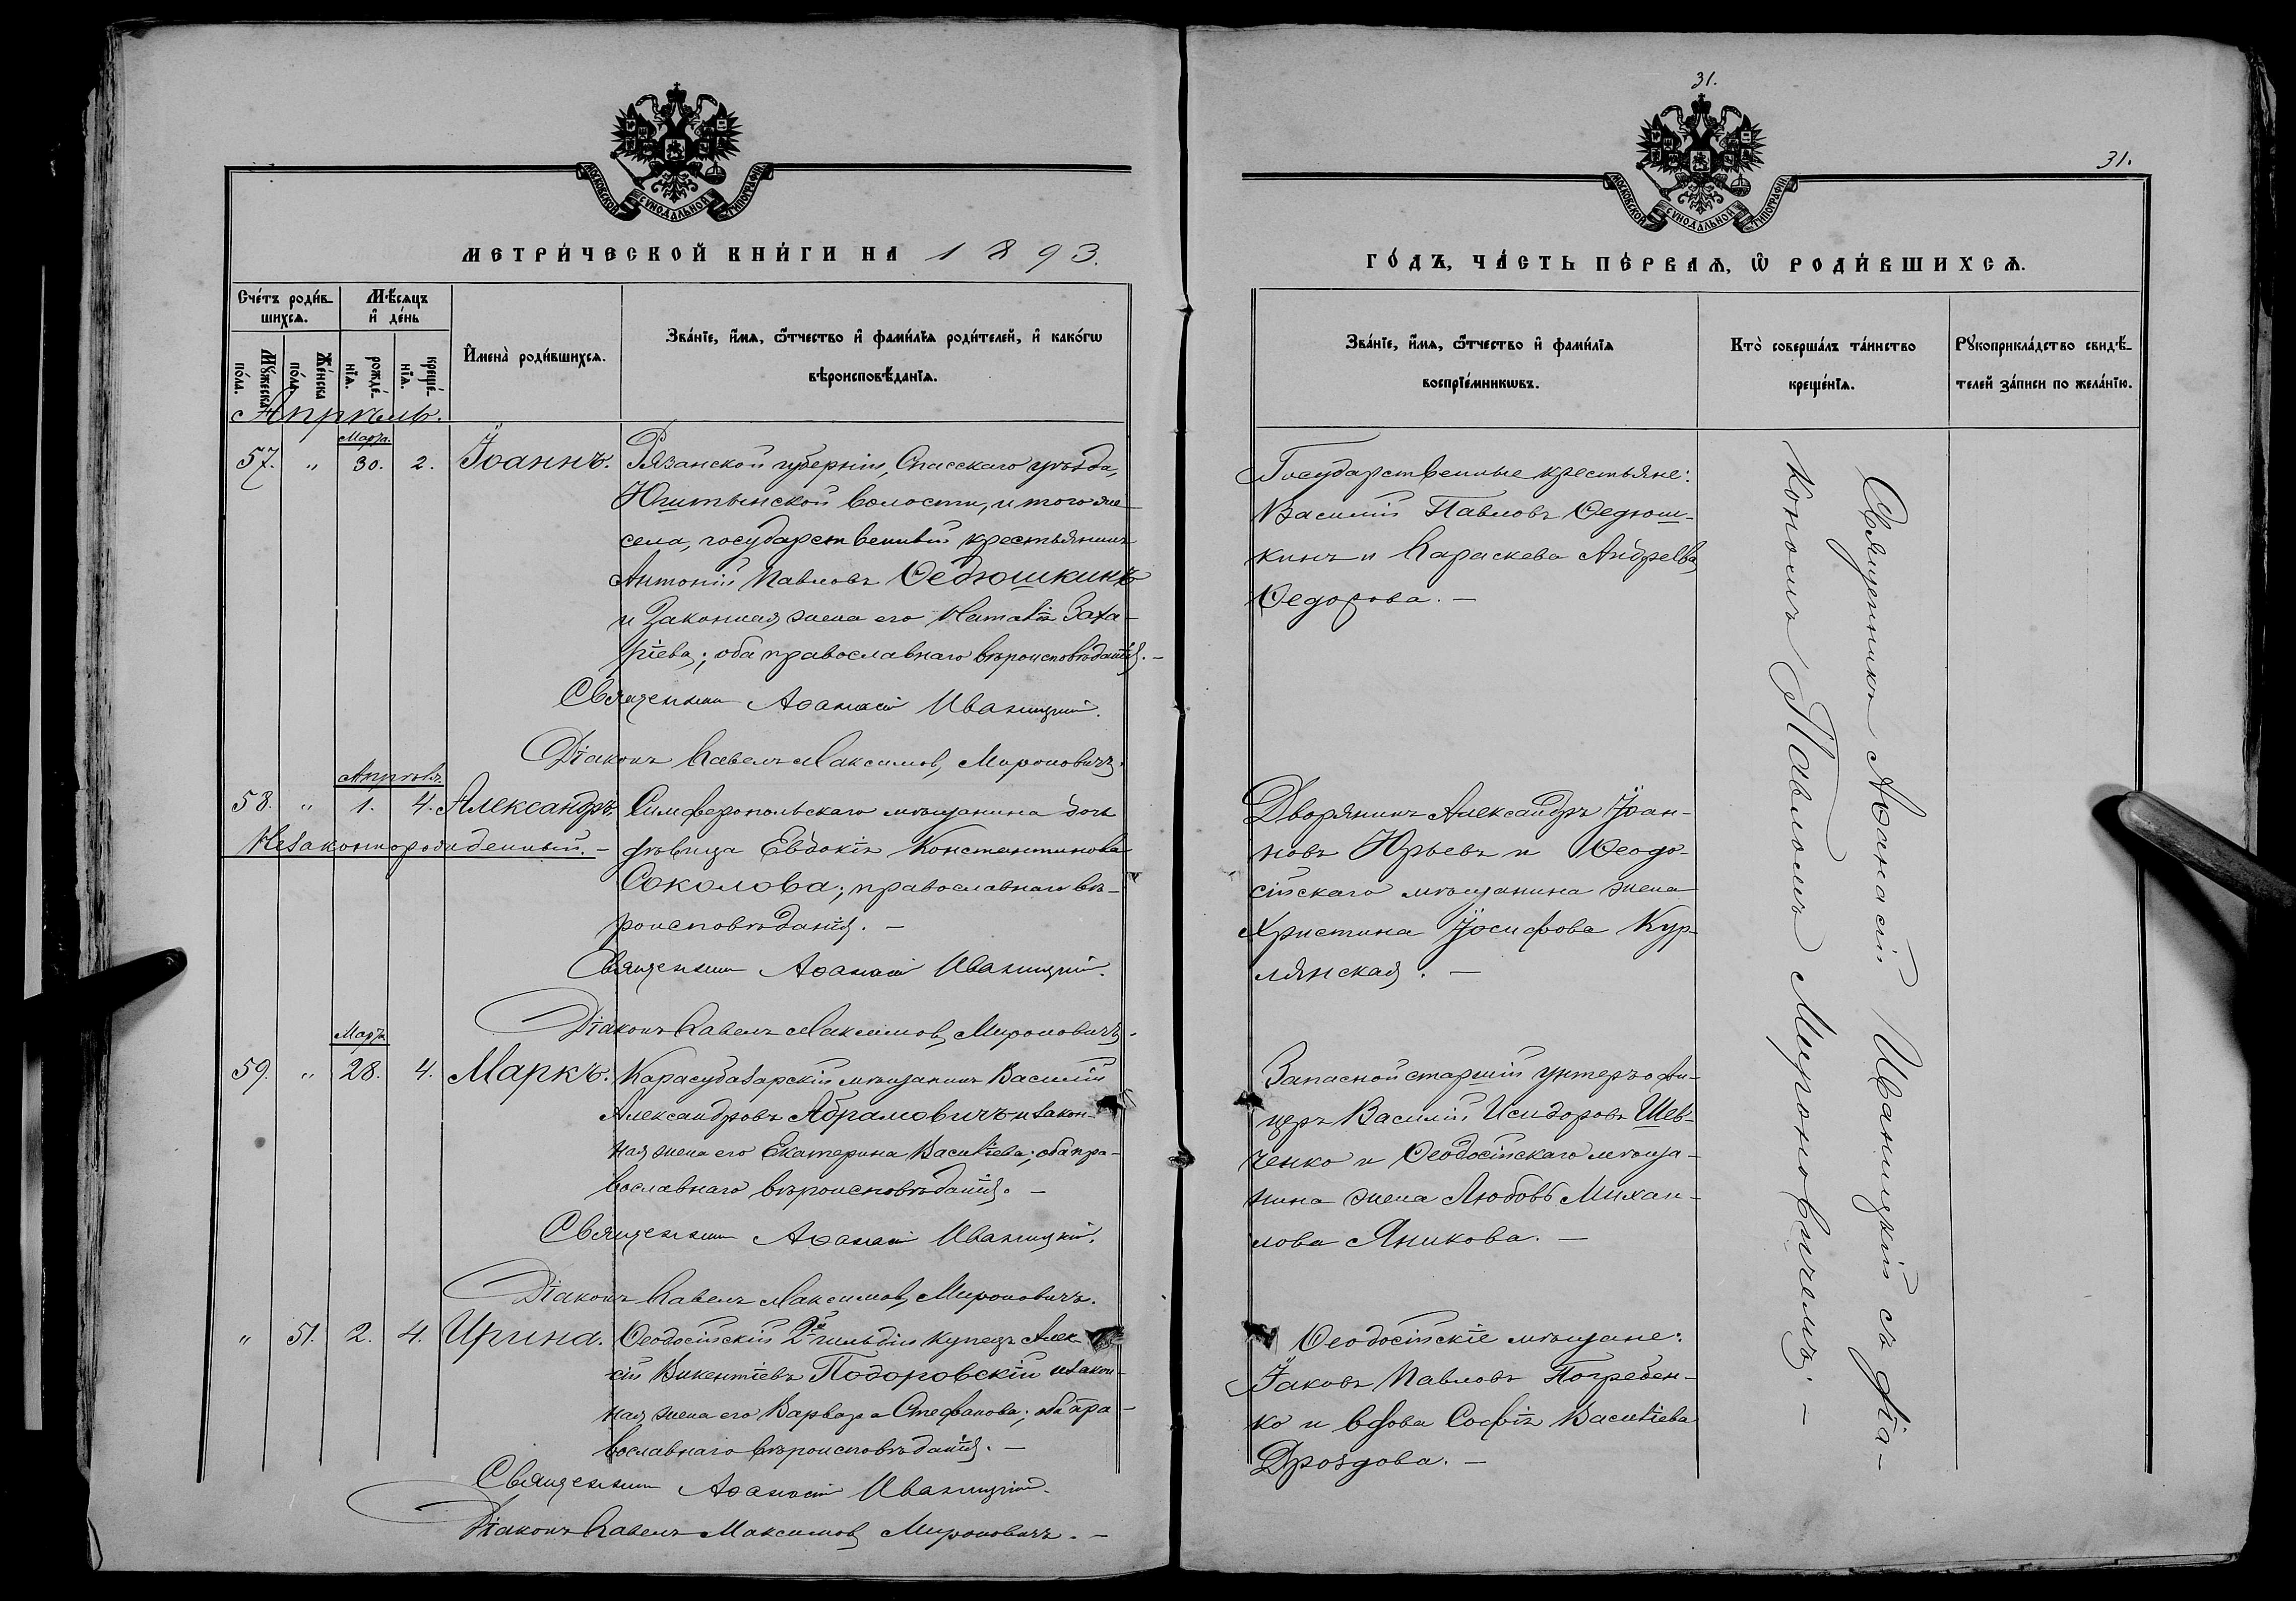 МОСКОВСКОЙ СѴНОДАЛЬНОЙ ТИПОГРАФІИ
МЕТРИ́ЧЕСКОЙ КНИ́ГИ НА 1893.
Сче́тъ роди́в-
шихсѧ.
Мѣ́сѧцъ
и҆ де́нь
Мꙋ́жеска
по́ла.
Же́нска
по́ла.
рожде́-
нїѧ.
креще́-
нїѧ.
И҆мена̀ роди́вшихсѧ.
Зва́нїе, и҆́мѧ, ѻ҆́тчество и҆ фами́лїѧ роди́телей, и҆ како́гѡ
вѣроисповѣ́данїѧ.
Апрѣль.
Марта
57. " 30. 2. Іоаннъ. Рязанской губерніи, Спасскаго уѣзда,
Ижитынской волости, и того же
села, государственный крестьянинъ
Антоній Павловъ Ѳедюшкинъ
и законная жена его Наталія Заха-
ріева; оба православнаго вѣроисповѣданія. —
Священникъ Аѳанасій Иваницкій.
Діаконъ Павелъ Максимовъ Мироновичъ.
Апрѣль
58. " 1. 4. Александръ. Симферопольскаго мѣщанина дочь
Незаконнорожденный. — дѣвица Евдокія Константинова
Соколова; православнаго вѣ-
роисповѣданія. —
Священникъ Аѳанасій Иваницкій.
Діаконъ Павелъ Максимовъ Мироновичъ.
Марта
59. " 28. 4. Маркъ. Карасубазарскій мѣщанинъ Василій
Александровъ Абрамовичъ и закон-
ная жена его Екатерина Василіева; оба пра-
вославнаго вѣроисповѣданія. —
Священникъ Аѳанасій Иваницкій.
Діаконъ Павелъ Максимовъ Мироновичъ.
" 51. 2. 4. Ирина. Ѳеодосійскій 2й гильдіи купецъ Алек-
сій Викентіевъ Подоровскій и закон-
ная жена его Варвара Стефанова; оба пра-
вославнаго вѣроисповѣданія. —
Священникъ Аѳанасій Иваницкій.
Діаконъ Павелъ Максимовъ Мироновичъ. —
31.
МОСКОВСКОЙ СѴНОДАЛЬНОЙ ТИПОГРАФІИ
31.
ГО́ДЪ, ЧА́СТЬ ПЕ́РВАѦ, Ѡ҆ РОДИ́ВШИХСѦ.
Зва́нїе, и҆́мѧ, ѻ҆́тчество и҆ фами́лїѧ
воспрїе́мникѡвъ.
Кто̀ соверша́лъ та́инство
креще́нїѧ.
Рꙋкоприкла́дство свидѣ́-
телей за́писи по жела́нїю.
Государственные крестьяне:
Василій Павловъ Ѳедюш-
кинъ и Параскева Андреева
Ѳедорова. —
Дворянинъ Александръ Іоан-
новъ Юрьевъ и Ѳеодо-
сійскаго мѣщанина жена
Христина Іосифова Кур-
лянская. —
Запасной старшій унтеръ-офи-
церъ Василій Исидоровъ Шев-
ченко и Ѳеодосійскаго мѣща-
нина жена Любовь Михаи-
лова Яникова. —
Ѳеодосійскіе мѣщане:
Іаковъ Павловъ Погребен-
ко и вдова Софія Василіева
Дроздова. —
Священникъ Аѳанасій Иваницкій съ діа-
кономъ Павломъ Мироновичемъ. —